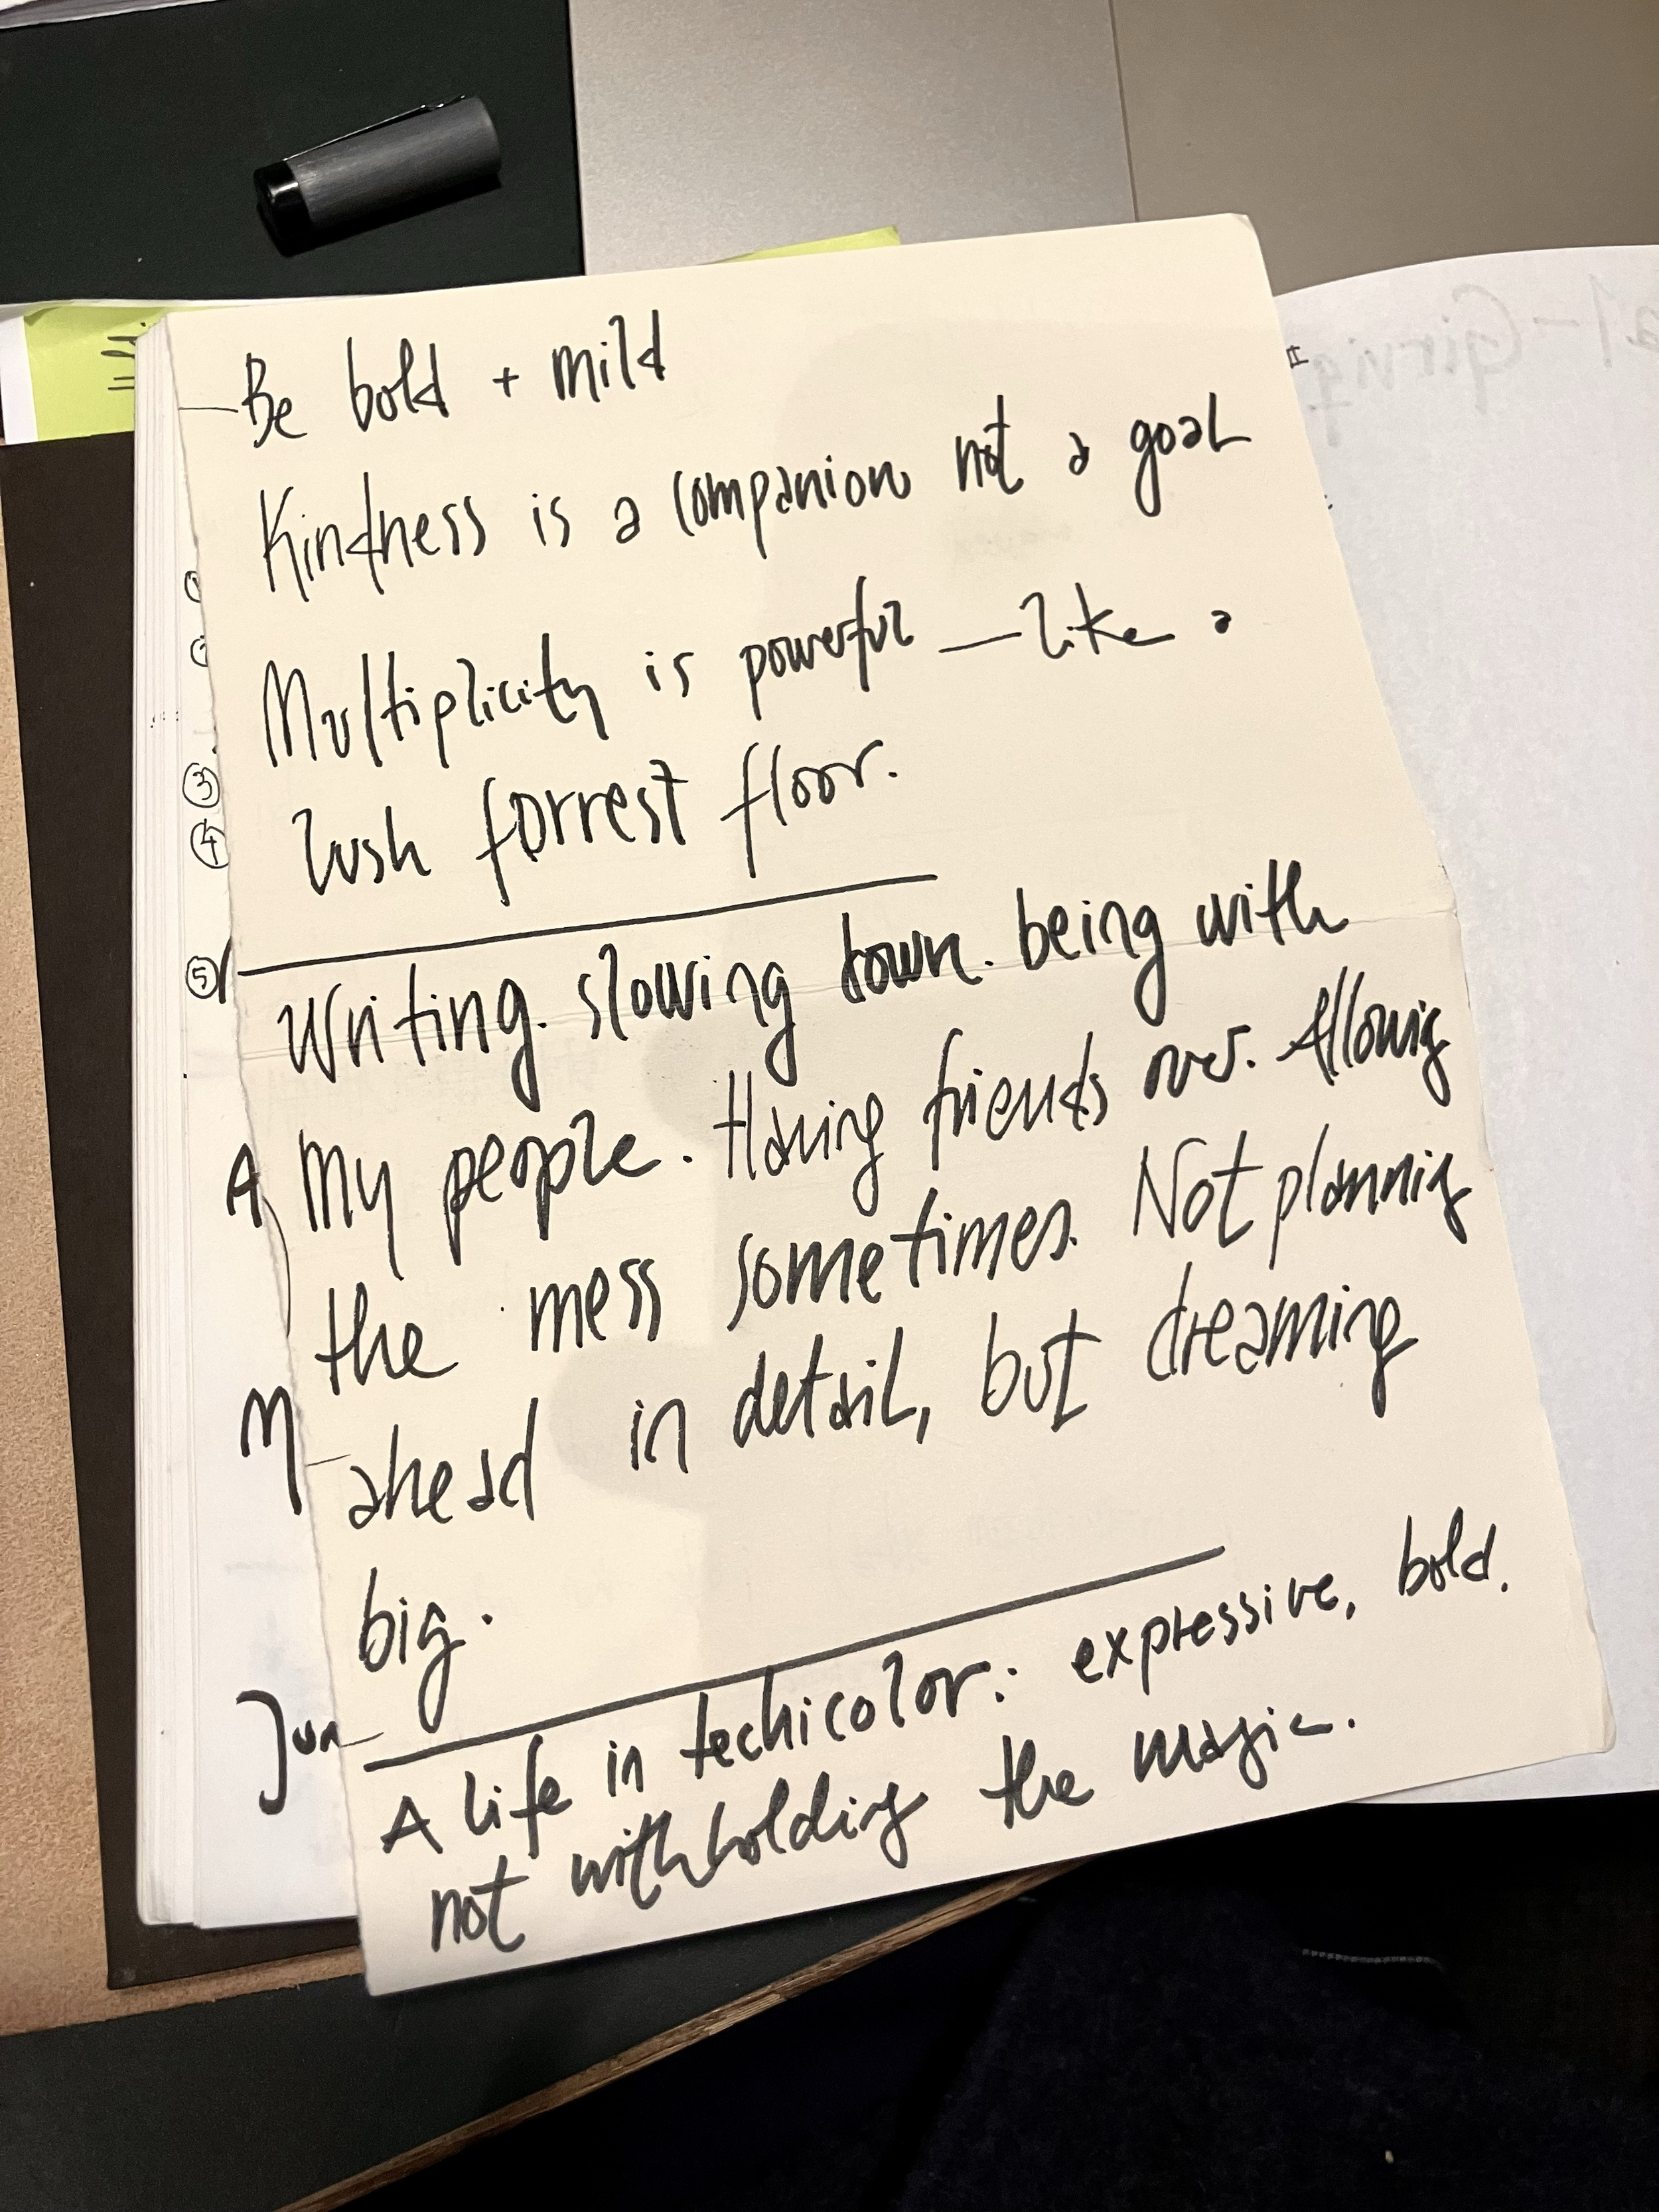 Be bold + mild
Kindness is a companion not a goal
Multiplicity is powerful — like a
lush forrest floor.
Writing. slowing down. being with
my people. Having friends over. Allowing
the mess sometimes. Not planning
ahead in detail, but dreaming
big.
A life in techicolor: expressive, bold.
not withholding the magic.
3
4
5
A
M
Jun